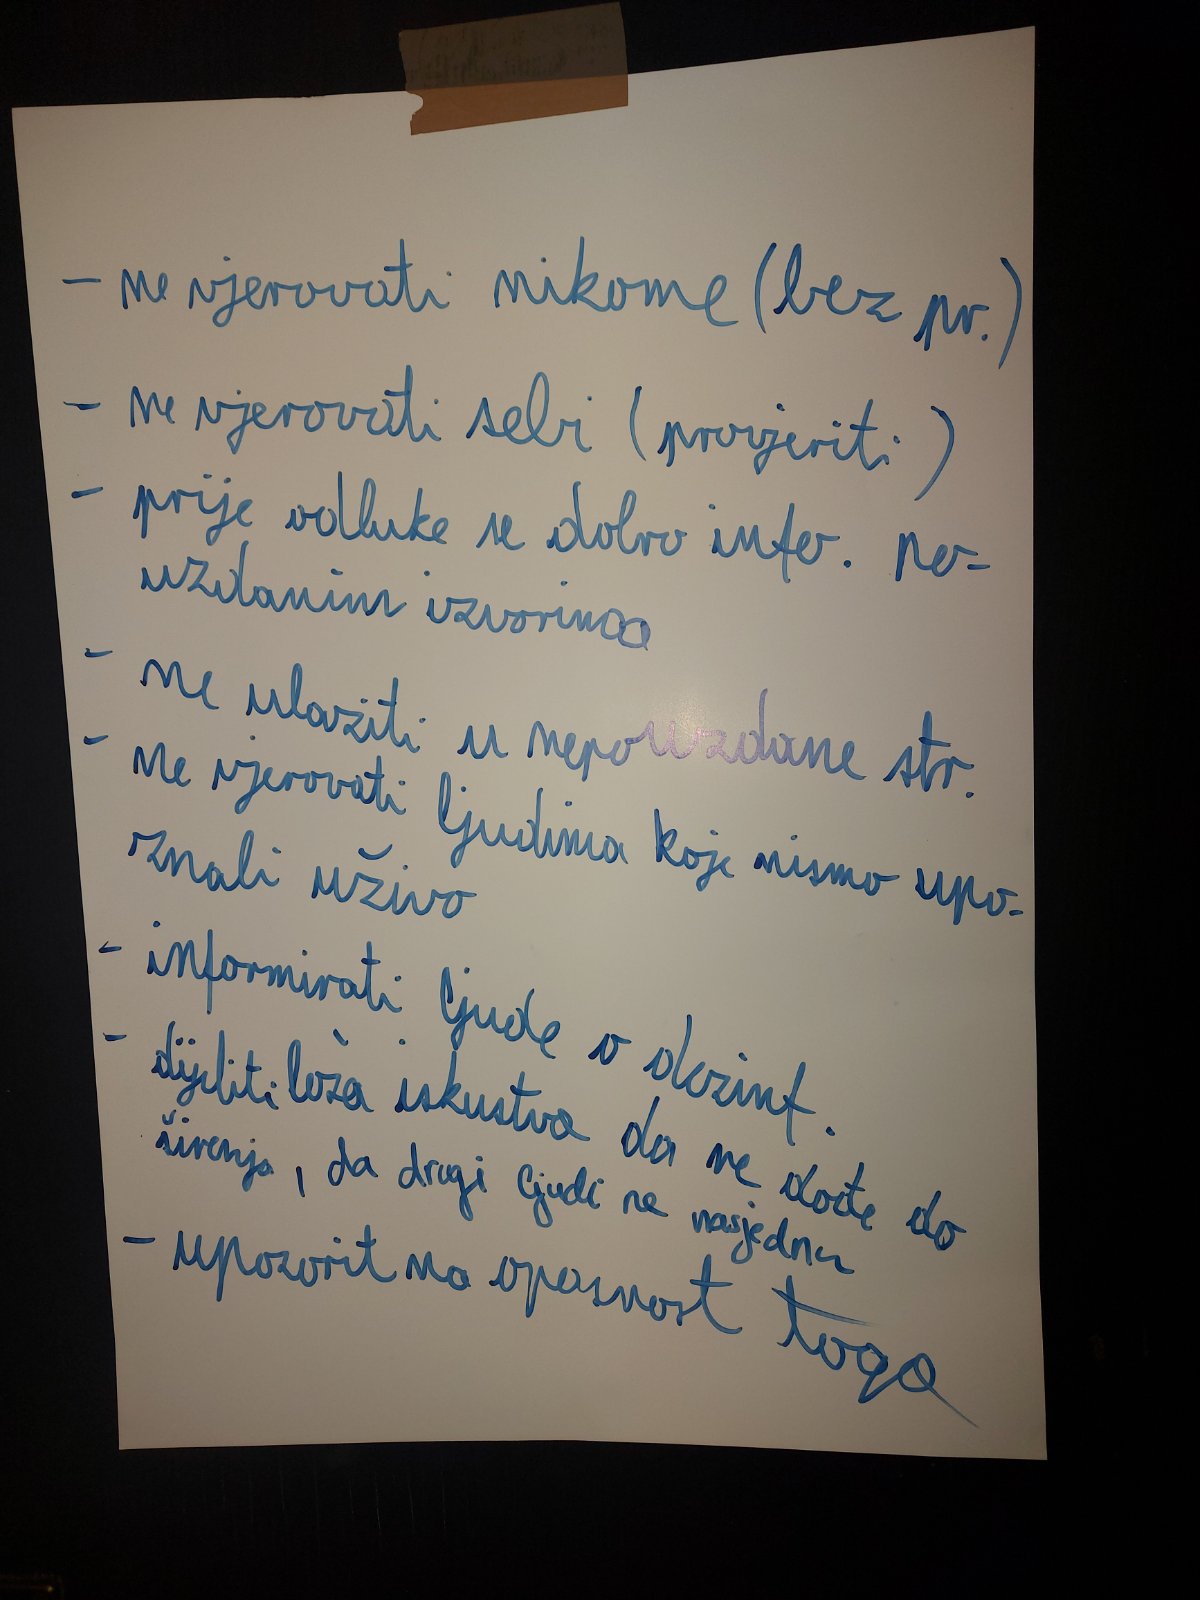 - ne vjerovati nikome (bez pr.)
- ne vjerovati sebi (provjeriti)
- prije odluke se dobro infor. po-
uzdanim izvorima
- ne ulaziti u nepouzdane str.
- ne vjerovati ljudima koje nismo upo-
znali uživo
- informirati ljude o dezinf.
- dijeliti loša iskustva da ne dođe do
širenja, da drugi ljudi ne nasjednu
- upozorit na opasnost toga